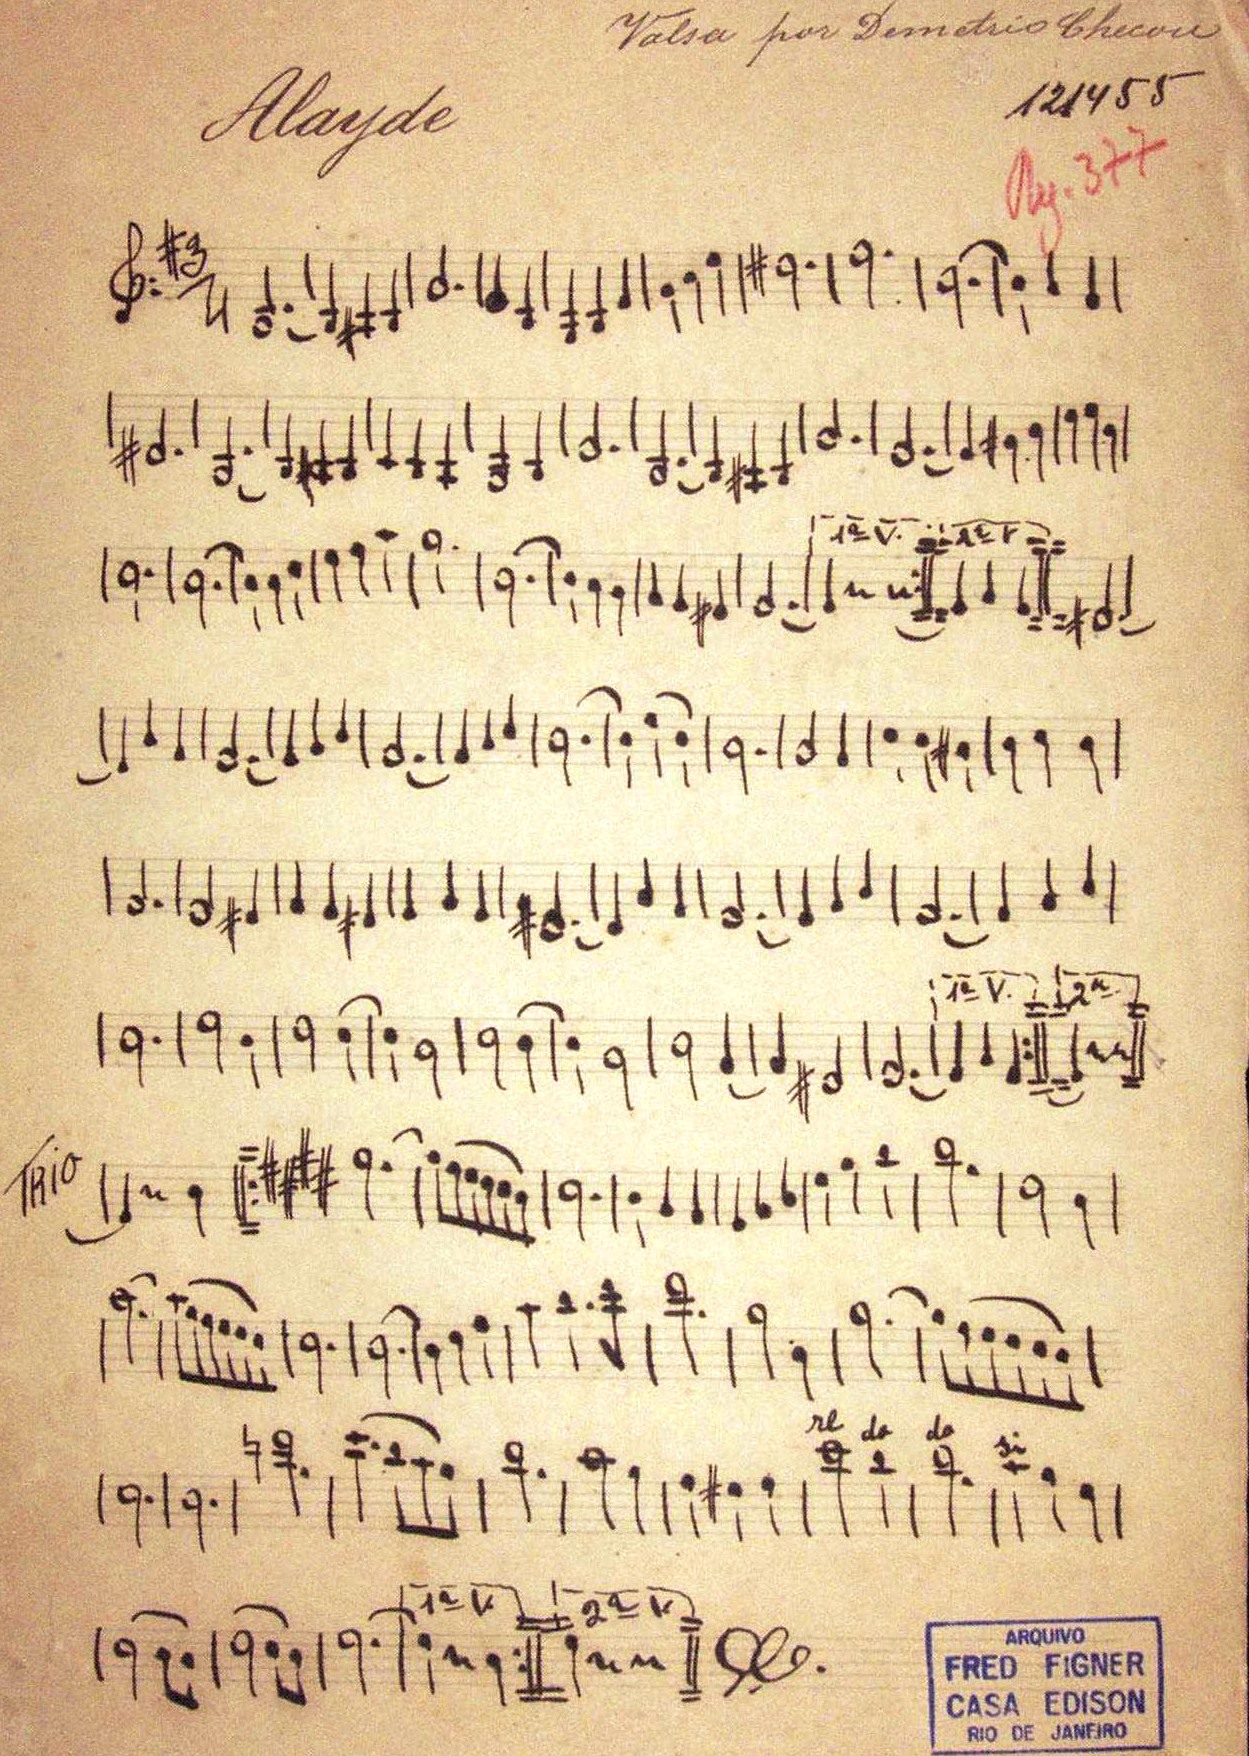 Valsa por Demetrio
Alayde
121455
Pg. 377
3
4
1ª V. 2ª V
1ª V. 2ª
TRIO
re do do si
1ª V. 2ª V.
ARQUIVO
FRED FIGNER
CASA EDISON
RIO DE JANEIRO